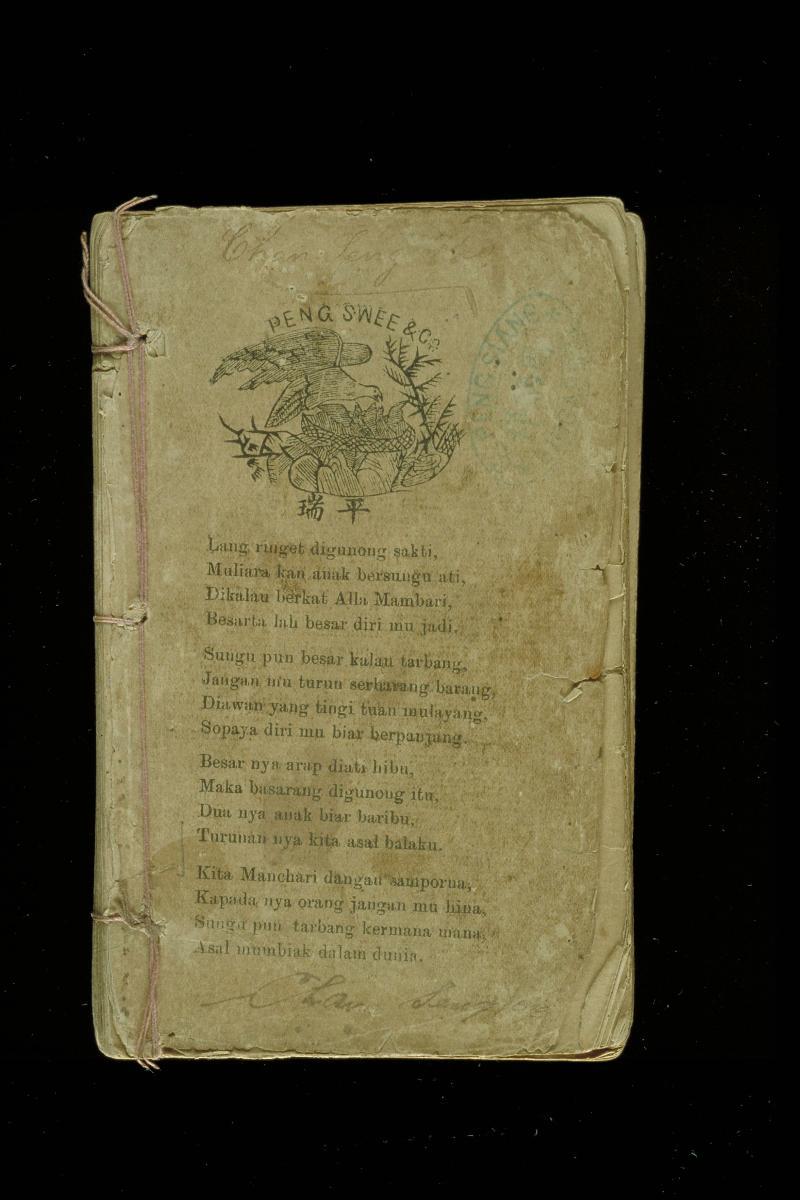 Chan Seng
PENG SWEE & Co.
PENG SIANG
瑞平
Lang ringet digunong sakti,
Muliara kan anak bersungu ati,
Dikalau berkat Alla Mambari,
Besarta lah besar diri mu jadi.
Sungu pun besar kalau tarbang,
Jangan mu turun serbarang barang,
Diawan yang tingi tuan mulayang,
Sopaya diri mu biar berpanjang.
Besar nya arap diati hibu,
Maka basarang digunong itu,
Dua nya anak biar baribu,
Turunan nya kita asal balaku.
Kita Manchari dangan samporna,
Kapada nya orang jangan mu hina,
Sungu pun tarbang kermana mana,
Asal mumbiak dalam dunia.
Chan Seng